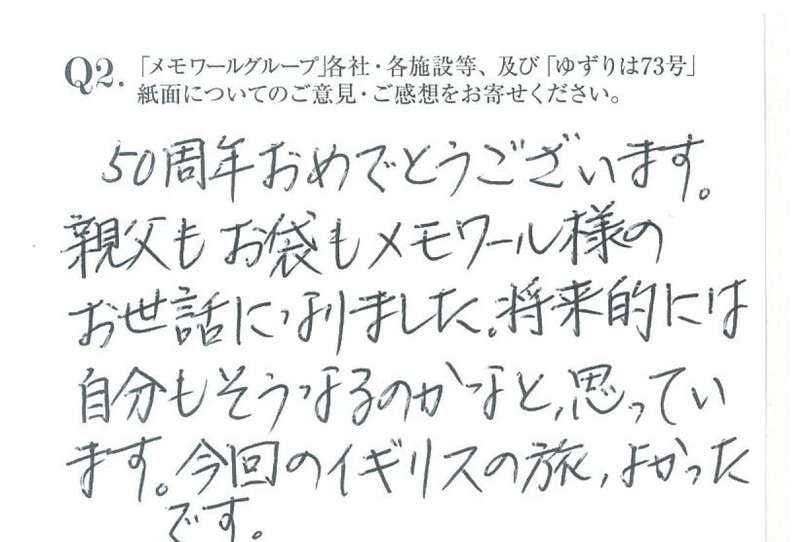 Q2. 「メモワールグループ」各社・各施設等、及び「ゆずりは73号」
紙面についてのご意見・ご感想をお寄せください。
50周年おめでとうございます。
親父もお袋もメモワール様の
お世話になりました。将来的には
自分もそうなるのかなと、思ってい
ます。今回のイギリスの旅、よかった
です。